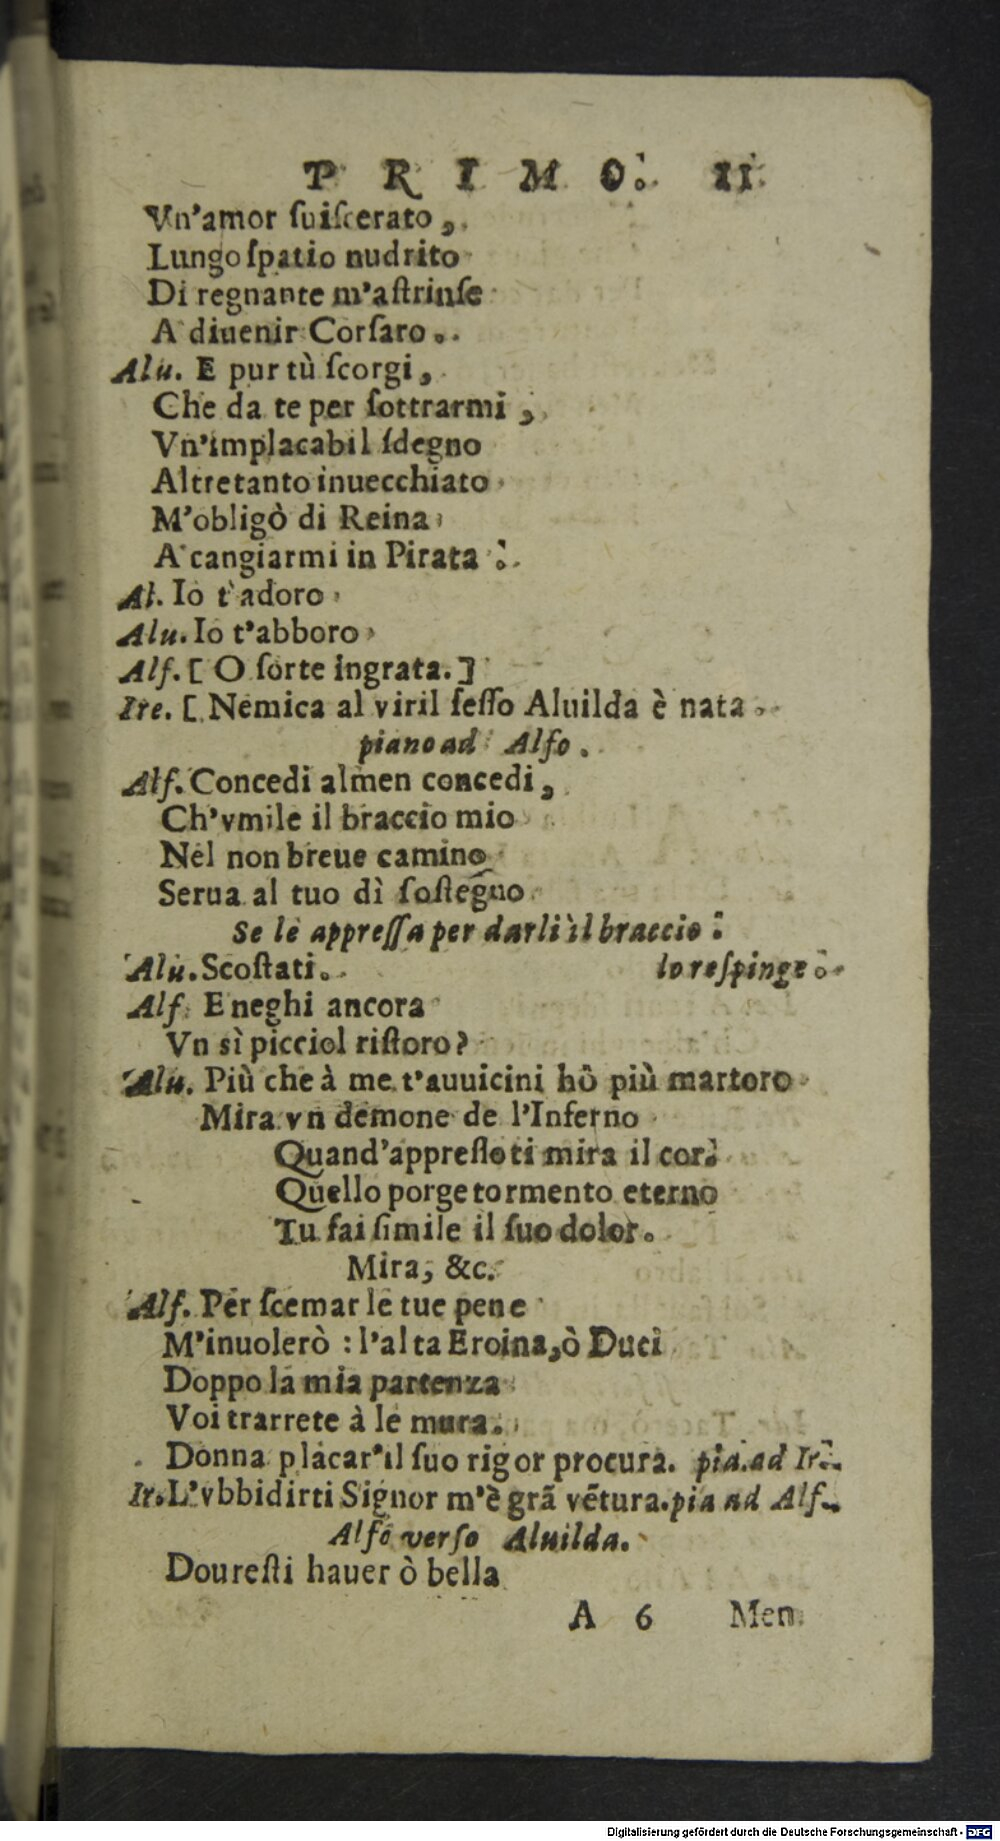 PRIMO. 11
Vn'amor ſuiſcerato,
Lungo ſpatio nudrito
Di regnante m'aſtrinſe
A diuenir Corſaro.
Alu. E pur tù ſcorgi,
Che da te per ſottrarmi,
Vn'implacabil ſdegno
Altretanto inuecchiato
M'obligò di Reina
A cangiarmi in Pirata.
Al. Io t'adoro
Alu. Io t'abboro
Alf. [ O ſorte ingrata. ]
Ire. [ Nemica al viril ſeſſo Aluilda è nata.
piano ad Alfo.
Alf. Concedi almen concedi,
Ch'vmile il braccio mio
Nel non breue camino
Serua al tuo dì ſoſtegno
Se le appreſſa per darli il braccio.
Alu. Scoſtati. lo reſpinge.
Alf. E neghi ancora
Vn sì picciol riſtoro?
Alu. Più che à me t'auuicini hò più martoro
Mira vn demone de l'Inferno
Quand'appreſſo ti mira il cor.
Quello porge tormento eterno
Tu fai ſimile il ſuo dolor.
Mira, &c.
Alf. Per ſcemar le tue pene
M'inuolerò : l'alta Eroina, ò Duci
Doppo la mia partenza
Voi trarrete à le mura.
Donna placar'il ſuo rigor procura. pia. ad Ir.
Ir. L'vbbidirti Signor m'è grã vẽtura. pia ad Alf.
Alfo verſo Aluilda.
Doureſti hauer ò bella
A 6 Men
Digitalisierung gefördert durch die Deutsche Forschungsgemeinschaft - DFG